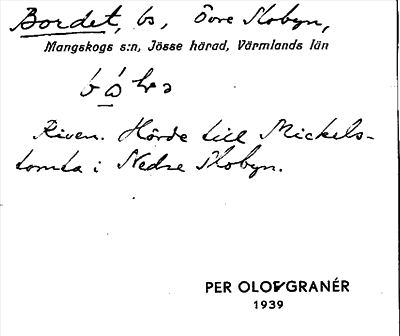 Bordet, bs, Övre Skobyn,
Mangskogs s:n, Jösse härad, Värmlands län
Riven. Hörde till Mickels-
tomta i Nedre Skobyn.
PER OLOF GRANÉR
1939